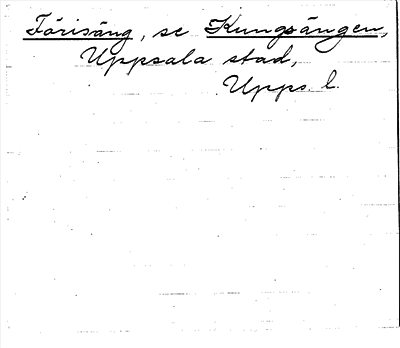 Förisäng, se Kungsängen,
Uppsala stad,
Upps. l.